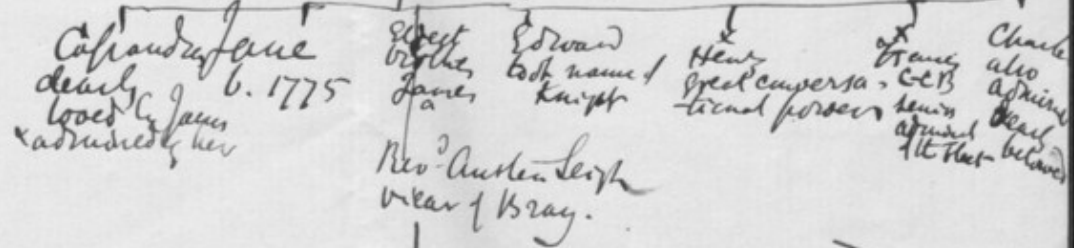 Cassandra
dearly
loved by James
& admired by her
Jane
b. 1775
Eldest
brother
James
a
Revd Austen Leigh
vicar of Bray.
Edward
took name of
Knight
Henry
great conversa-
tional powers
Francis
GCB
senior
admiral
of the fleet
Charles
also
admiral
dearly
beloved